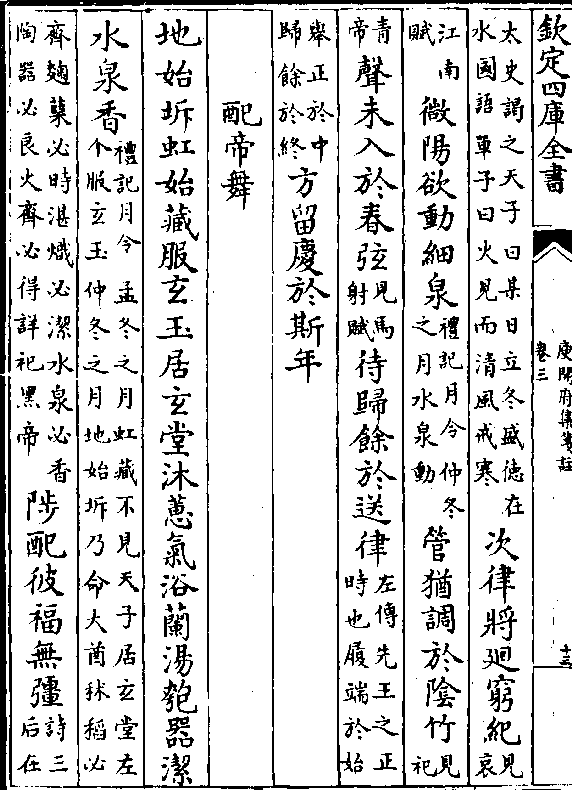 欽定四庫全書
庾開府集箋註
卷三
十三
太史謁之天子曰某日立冬盛德在
水國語單子曰火見而清風戒寒
次律將廻窮紀
見
哀
江南
賦
微陽欲動細泉
禮記月令仲冬
之月水泉動
管猶調於陰竹
見
祀
青
帝
聲未入於春弦
見馬
射賦
待歸餘於送律
左傳先王之正
時也履端於始
舉正於中
歸餘於終
方留慶於斯年
配帝舞
地始坼虹始藏服玄玉居玄堂沐蕙氣浴蘭湯匏器潔
水泉香
禮記月令孟冬之月虹藏不見天子居玄堂左
个服玄玉仲冬之月地始坼乃命大酋秫稻必
齊麴蘖必時湛熾必潔水泉必香
陶器必良火齊必得詳祀黑帝
陟配彼福無彊
詩三
后在